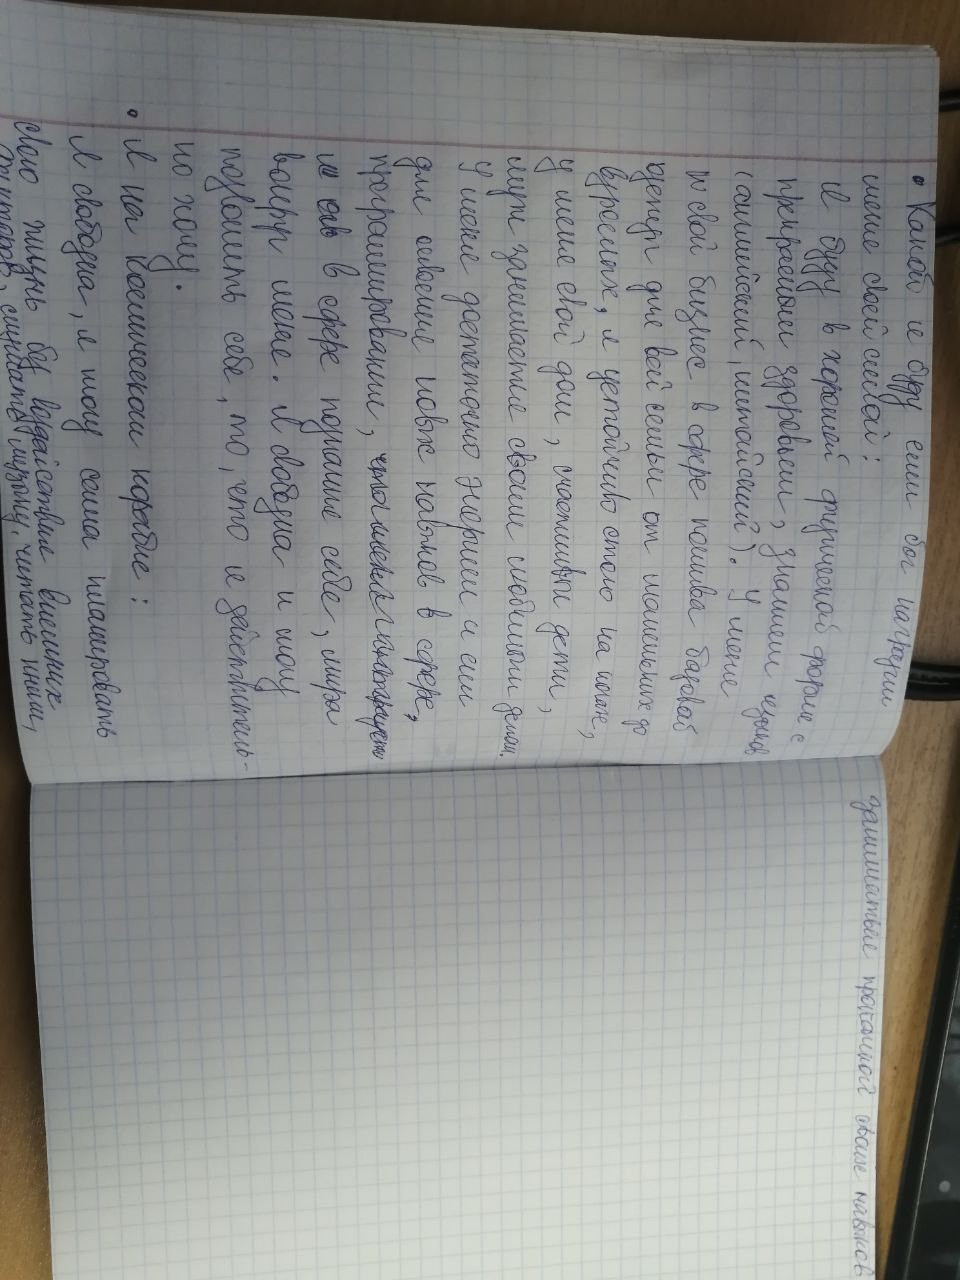 • Какой я буду если бог наградит
меня своей силой:
Я буду в хорошей физической форме с
прекрасным здоровьем, знанием языков
(английский, китайский). У меня
и свой бизнес в сфере пошива базовой
одежды для всей семьи от маленьких до
взрослых, я устойчиво стою на ногах,
у меня свой дом, счастливы дети,
муж занимается своим любимым делом.
У меня достаточно энергии и сил
для освоения новых навыков в сфере,
программировании,
в сфере познания себя, мира
вокруг меня. Я свободна и могу
позволить себе, то, что я действитель-
но хочу.
• Я на космическом корабле:
Я свободна, я могу сама планировать
свою жизнь без воздействия внешних
факторов, слушать музыку, читать книги,
заниматься прокачкой своих навыков